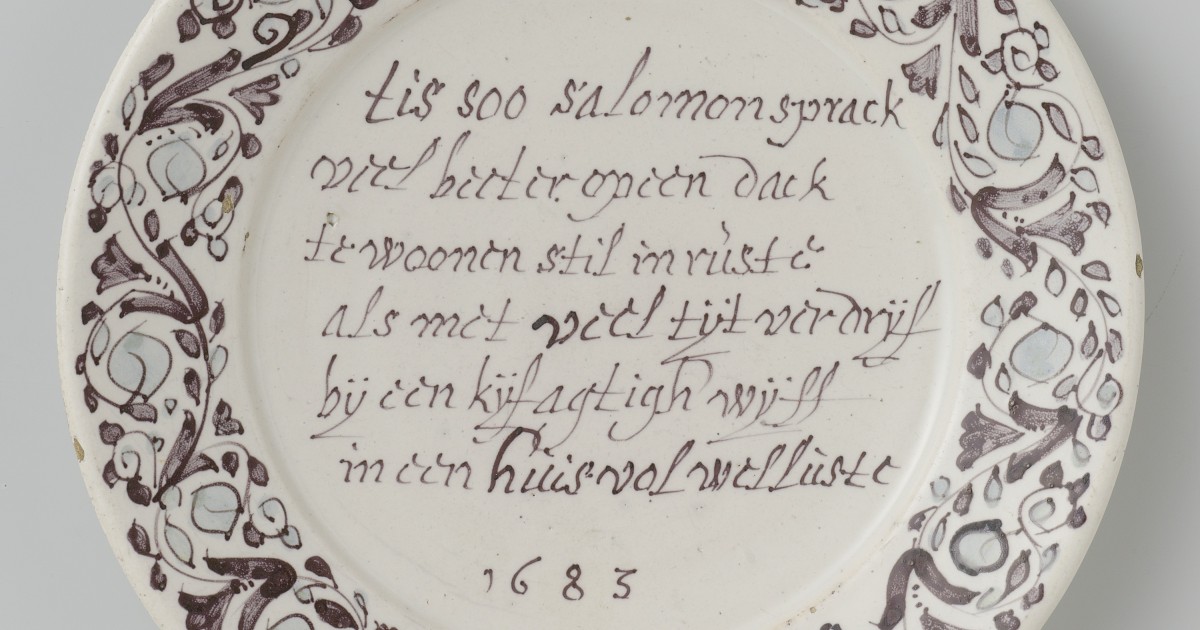 tis soo salomon sprack
veel beeter op een dack
te woonen stil in rùste
als met veel tÿt verdrÿf
bÿ een kÿfagtigh wÿff
in een hùis vol wellùste
1683